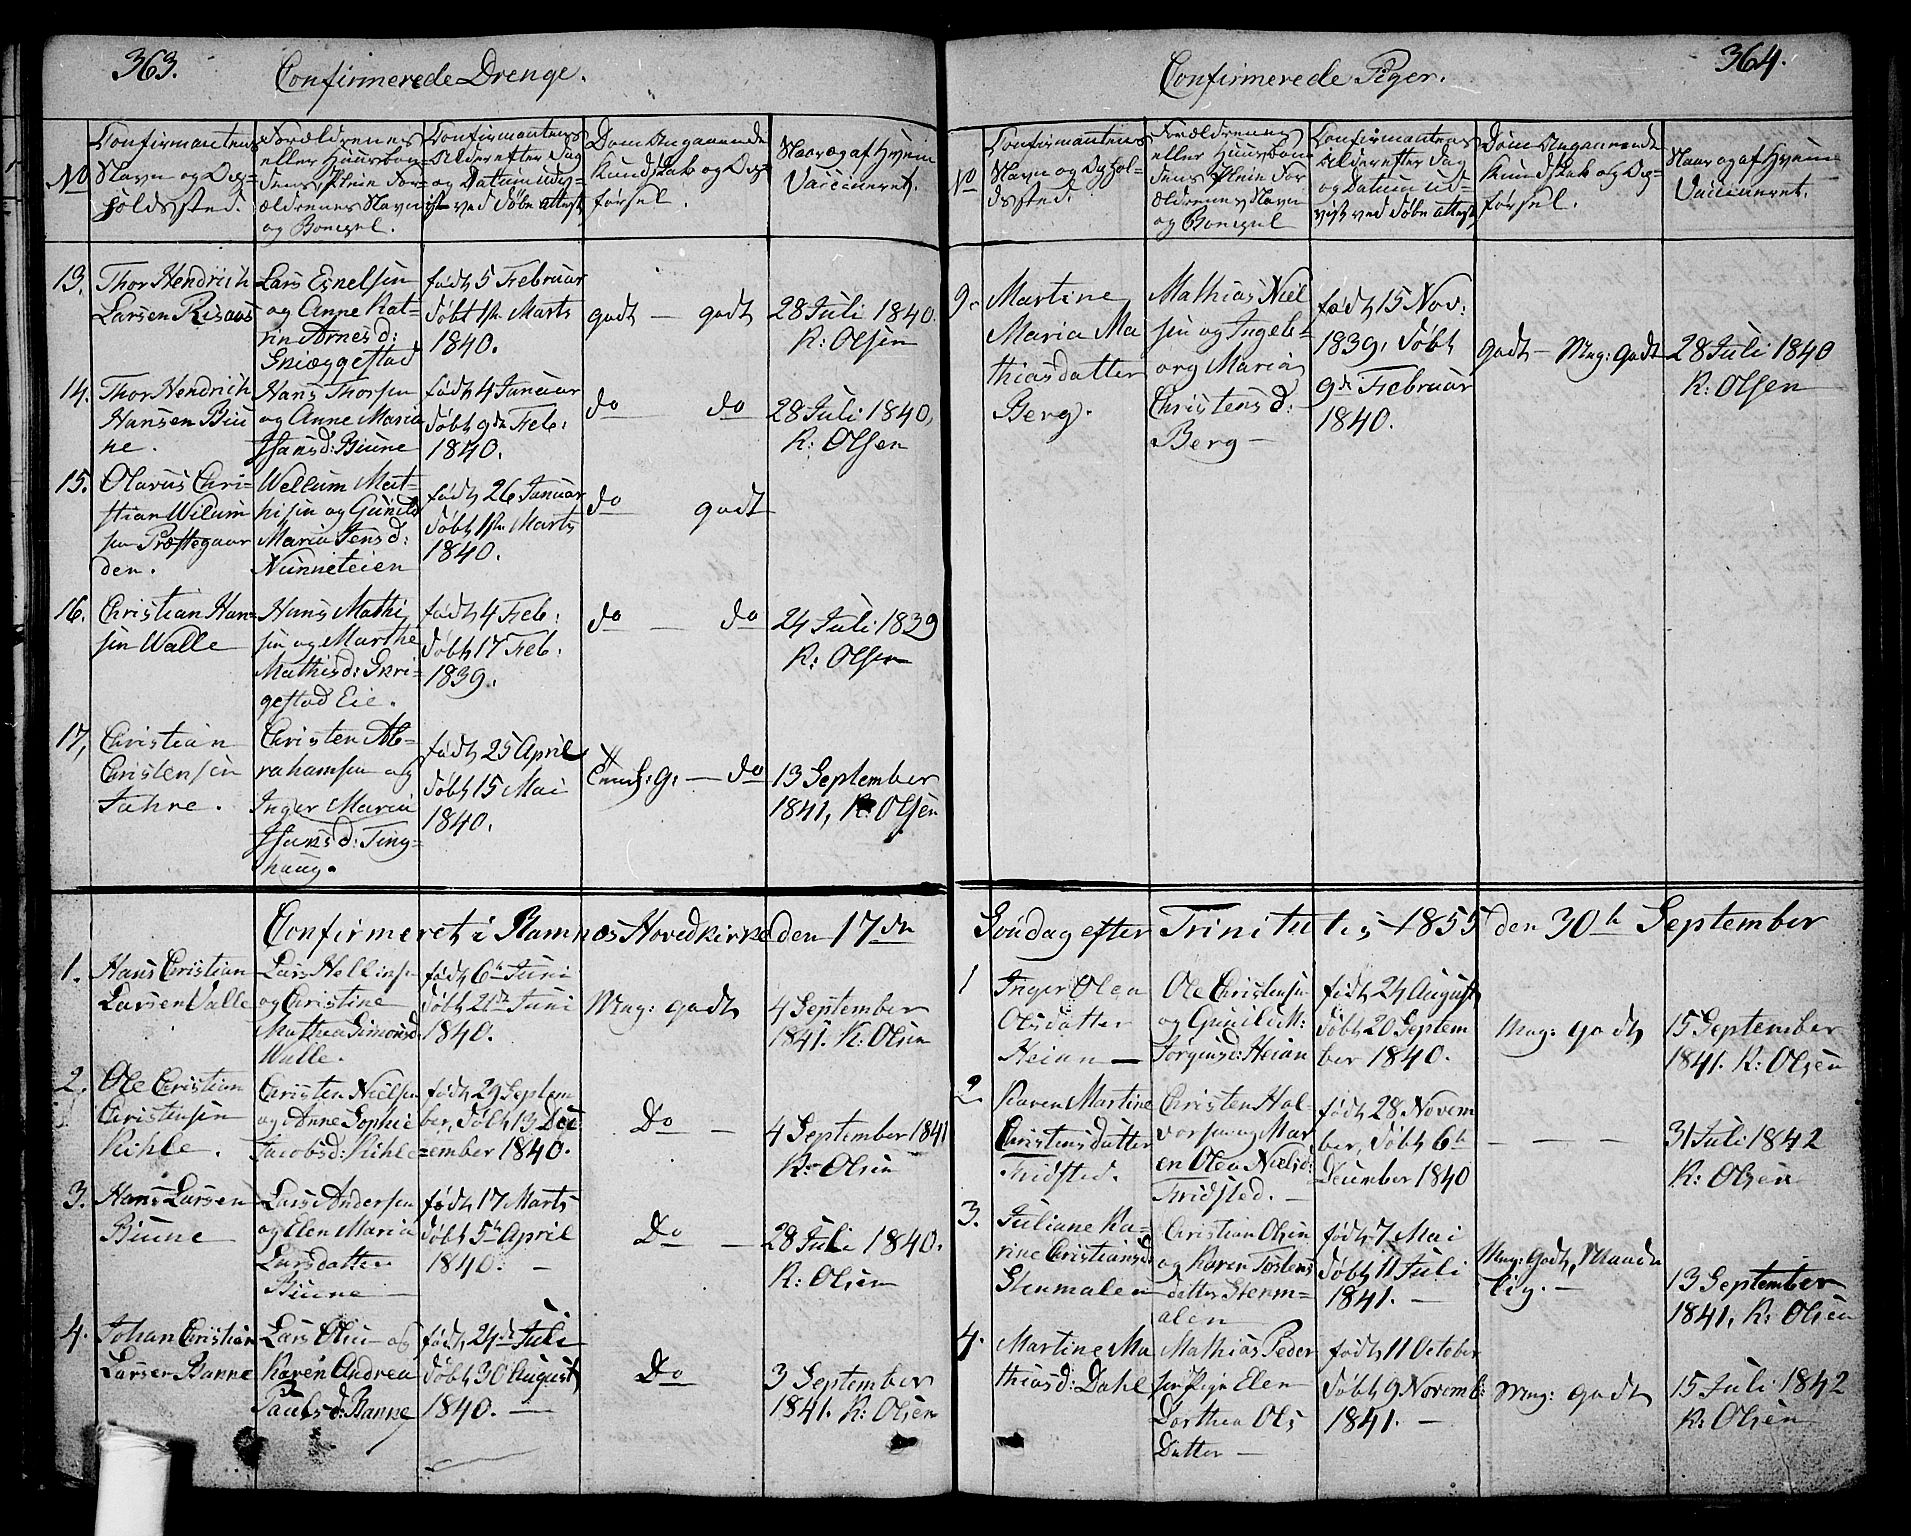 363.
Confirmerede Drenge.
No
Confirmantens
Navn og Op-
holdssted.
Forældrenes
eller Huusbon-
dens, Pleie For-
ældrenes Navn
og Bopæl.
Confirmantens
Alder efter Dag
og Datum udv-
ist ved Døbe attest
Dom Angaaende
Kundskab og Op-
førsel.
Naar og af Hvem
Vaccineret.
13.
Thor Hendrich
Larsen Risaas
Lars
og Anne Kat-
rin Arnesd:
Skiæggestad
født 5 Februar
døbt 1ste Marts
1840.
godt — godt
28 Juli 1840.
K: Olsen
14.
Thor Hendrich
Hansen Biu
ne.
Hans Thorsen
og Anne Maria
Hansd: Biune
født 4 Januar
døbt 9de Feb:
1840.
do do
28 Juli 1840,
K: Olsen
15.
Olavus Chri-
stian Wilum
sen Præstegaar
den.
Wellum Mat-
hisen og Gunild
Maria Jensd:
Nunneteien
født 26 Januar
døbt 1ste Marts
1840.
do godt
16.
Christian Han-
sen Walle
Hans Mathi
sen og Marthe
Mathisd: Skri-
gestad Eie.
født 4 Feb:
døbt 17 Feb:
1839.
do — do
24 Juli 1839
K: Olsen
17,
Christian
Christensen
Fahre.
Christen Ab-
rahamsen og
Inger Maria
Hansd: Ting-
haug.
født 25 April
døbt 15 Mai
1840.
g: — do
13 September
1841, K: Olsen
Confirmeret i Ramnæs Hovedkirke den 17de
1.
Hans Christian
Larsen Valle
Lars Hellesen
og Christine
Mathea Simonsd
Walle.
født 6te Juni
døbt 21de Juni
1840.
Mag: godt
4 September
1841. K: Olsen
2.
Ole Christian
Christensen
Kihle.
Christen Nielsen
og Anne Sophie
Jacobsd: Kihle
født 29 Septem
ber, døbt 13 Dec
ember 1840.
Do —
4 September 1841
K: Olsen
3.
Hans Larsen
Biune
Lars Andersen
og Elen Maria
Larsdatter
Biune
født 17 Marts
døbt 5te April
1840. —
Do —
28 Juli 1840.
K: Olsen
4.
Johan Christian
Larsen Banne
Lars Olsen og
Karen Andrea
Paulsd: Banne
født 24de Juli
døbt 30 August
1840. —
Do
3 September
1841. K: Olsen
364.
Confirmerede Piger.
No
Confirmantens
Navn og Ophol-
dsted.
Forældrenes
eller Huusbon-
dens, Pleie For
ældrenes Navn
og Bopæl
Confirmantens
Alder efter Dag
og Datum ud-
vist ved Døbe attest
Dom Angaaende
Kundskab og Op-
førsel.
Naar og af Hvem
Vaccineret.
9.
Martine
Maria Ma
thiasdatter
Berg.
Mathias Niel
sen og Ingeb-
org Maria
Christensd:
Berg —
født 15 Nov:
1839, døbt
9de Februar
1840.
godt — Mag: godt
28 Juli 1840
K: Olsen
Søndag efter Trinitatis 1855 den 30te September
1
Inger Olea
Olsdatter
Heian —
Ole Christensen
og Gunild M:
Jørgensd: Heian
født 24 August
døbt 20 Septem
ber 1840.
Mag: godt
15 September
1841. K: Olsen
2.
Karen Martine
Christensdatter
Fridsted.
Christen Hal-
vorsen og Mar
en Olea Nielsd:
Fridsted. —
født 28 Novem
ber, døbt 6te
December 1840
— — —
31 Juli 1842
K: Olsen
3.
Juliane Ka-
rine Christiansd
Stenmalen
Christian Olsen
og Karen Tostens
datter Stenm-
alen
født 7 Mai
døbt 11 Juli
1841. —
Mag: Godt,
13 September
1841, K: Olsen
4.
Martine Ma
thiasd: Dahl
Mathias Peder
sen Elen
Dorthea Ols
Datter —
født 11 October
døbt 9 Novemb:
1841. —
Mag: godt
15 Juli 1842
K: Olsen